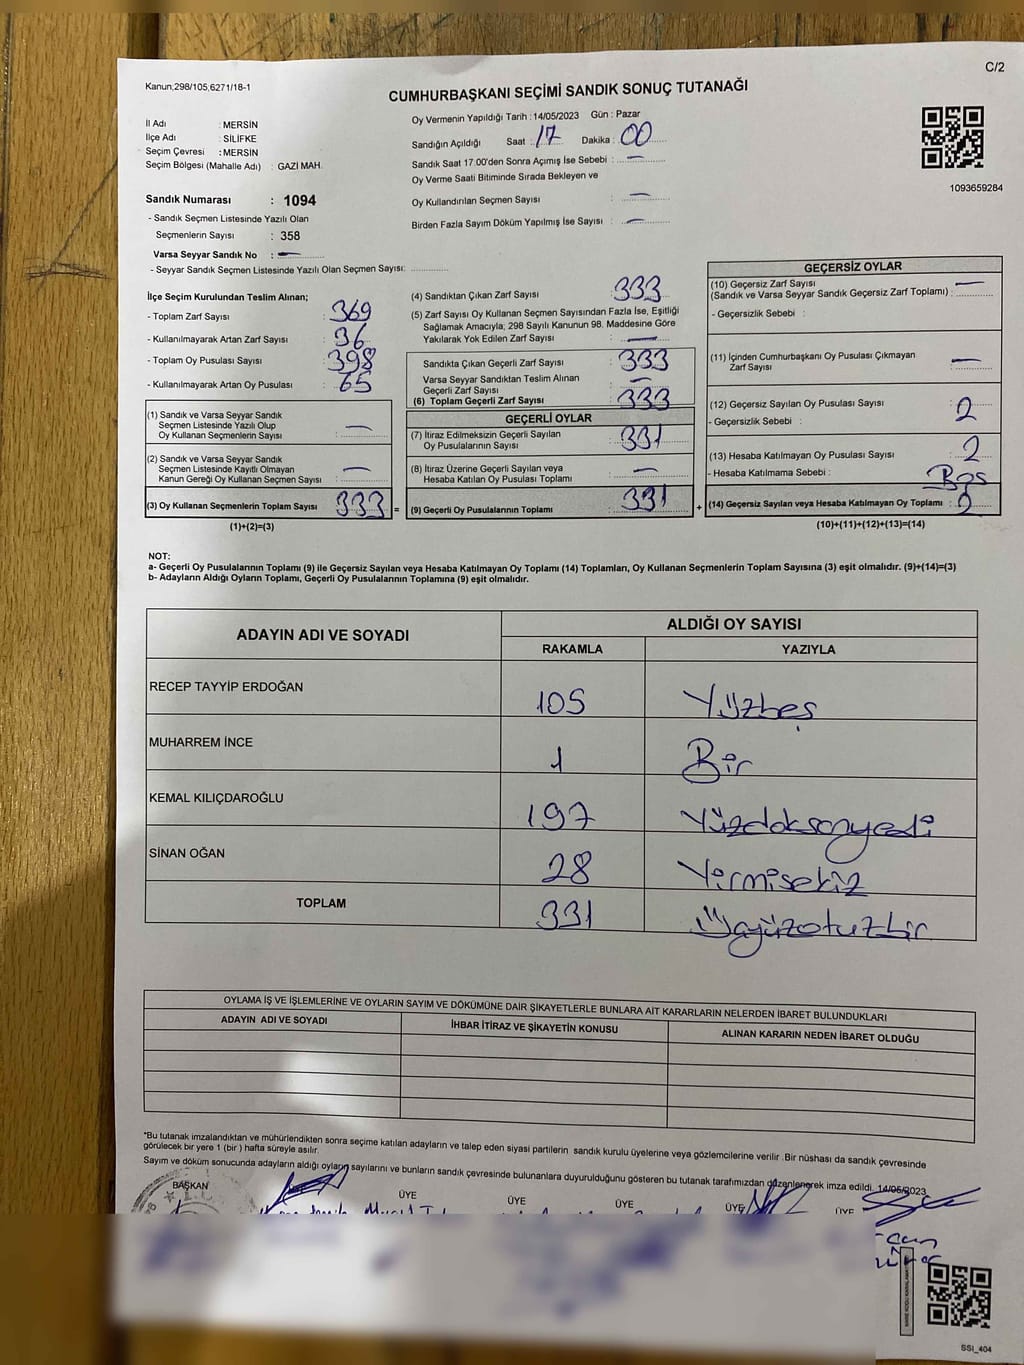 C/2
Kanun;298/105;6271/18-1
CUMHURBAŞKANI SEÇİMİ SANDIK SONUÇ TUTANAĞI
İl Adı : MERSİN
İlçe Adı : SİLİFKE
Seçim Çevresi : MERSİN
Seçim Bölgesi (Mahalle Adı) : GAZİ MAH.
Oy Vermenin Yapıldığı Tarih : 14/05/2023 Gün : Pazar
Sandığın Açıldığı Saat : 17 Dakika : 00
Sandık Saat 17:00'den Sonra Açımış İse Sebebi : —
Oy Verme Saati Bitiminde Sırada Bekleyen ve
Oy Kullandırılan Seçmen Sayısı : —
Birden Fazla Sayım Döküm Yapılmış İse Sayısı : —
1093659284
Sandık Numarası : 1094
- Sandık Seçmen Listesinde Yazılı Olan
Seçmenlerin Sayısı : 358
Varsa Seyyar Sandık No : —
- Seyyar Sandık Seçmen Listesinde Yazılı Olan Seçmen Sayısı:
İlçe Seçim Kurulundan Teslim Alınan;
- Toplam Zarf Sayısı : 369
- Kullanılmayarak Artan Zarf Sayısı : 36
- Toplam Oy Pusulası Sayısı : 398
- Kullanılmayarak Artan Oy Pusulası : 65
(1) Sandık ve Varsa Seyyar Sandık
Seçmen Listesinde Yazılı Olup
Oy Kullanan Seçmenlerin Sayısı : —
(2) Sandık ve Varsa Seyyar Sandık
Seçmen Listesinde Kayıtlı Olmayan
Kanun Gereği Oy Kullanan Seçmen Sayısı : —
(3) Oy Kullanan Seçmenlerin Toplam Sayısı : 333 =
(1)+(2)=(3)
(4) Sandıktan Çıkan Zarf Sayısı : 333
(5) Zarf Sayısı Oy Kullanan Seçmen Sayısından Fazla İse, Eşitliği
Sağlamak Amacıyla; 298 Sayılı Kanunun 98. Maddesine Göre
Yakılarak Yok Edilen Zarf Sayısı : —
Sandıkta Çıkan Geçerli Zarf Sayısı : 333
Varsa Seyyar Sandıktan Teslim Alınan
Geçerli Zarf Sayısı : —
(6) Toplam Geçerli Zarf Sayısı : 333
GEÇERLİ OYLAR
(7) İtiraz Edilmeksizin Geçerli Sayılan
Oy Pusulalarının Sayısı : 331
(8) İtiraz Üzerine Geçerli Sayılan veya
Hesaba Katılan Oy Pusulası Toplamı : —
(9) Geçerli Oy Pusulalarının Toplamı : 331 +
GEÇERSİZ OYLAR
(10) Geçersiz Zarf Sayısı
(Sandık ve Varsa Seyyar Sandık Geçersiz Zarf Toplamı) : —
- Geçersizlik Sebebi :
(11) İçinden Cumhurbaşkanı Oy Pusulası Çıkmayan
Zarf Sayısı : —
(12) Geçersiz Sayılan Oy Pusulası Sayısı : 2
- Geçersizlik Sebebi :
(13) Hesaba Katılmayan Oy Pusulası Sayısı : 2
- Hesaba Katılmama Sebebi : Boş
(14) Geçersiz Sayılan veya Hesaba Katılmayan Oy Toplamı : 2
(10)+(11)+(12)+(13)=(14)
NOT:
a- Geçerli Oy Pusulalarının Toplamı (9) ile Geçersiz Sayılan veya Hesaba Katılmayan Oy Toplamı (14) Toplamları, Oy Kullanan Seçmenlerin Toplam Sayısına (3) eşit olmalıdır. (9)+(14)=(3)
b- Adayların Aldığı Oyların Toplamı, Geçerli Oy Pusulalarının Toplamına (9) eşit olmalıdır.
ADAYIN ADI VE SOYADI ALDIĞI OY SAYISI
RAKAMLA YAZIYLA
RECEP TAYYİP ERDOĞAN 105 Yüzbeş
MUHARREM İNCE 1 Bir
KEMAL KILIÇDAROĞLU 197 Yüzdoksanyedi
SİNAN OĞAN 28 Yirmisekiz
TOPLAM 331 Üçyüzotuzbir
OYLAMA İŞ VE İŞLEMLERİNE VE OYLARIN SAYIM VE DÖKÜMÜNE DAİR ŞİKAYETLERLE BUNLARA AİT KARARLARIN NELERDEN İBARET BULUNDUKLARI
ADAYIN ADI VE SOYADI İHBAR İTİRAZ VE ŞİKAYETİN KONUSU ALINAN KARARIN NEDEN İBARET OLDUĞU
*Bu tutanak imzalandıktan ve mühürlendikten sonra seçime katılan adayların ve talep eden siyasi partilerin sandık kurulu üyelerine veya gözlemcilerine verilir. Bir nüshası da sandık çevresinde
görülecek bir yere 1 (bir) hafta süreyle asılır.
Sayım ve döküm sonucunda adayların aldığı oyların sayılarını ve bunların sandık çevresinde bulunanlara duyurulduğunu gösteren bu tutanak tarafımızdan düzenlenerek imza edildi. 14/05/2023
BAŞKAN ÜYE ÜYE ÜYE ÜYE ÜYE
SSI_404